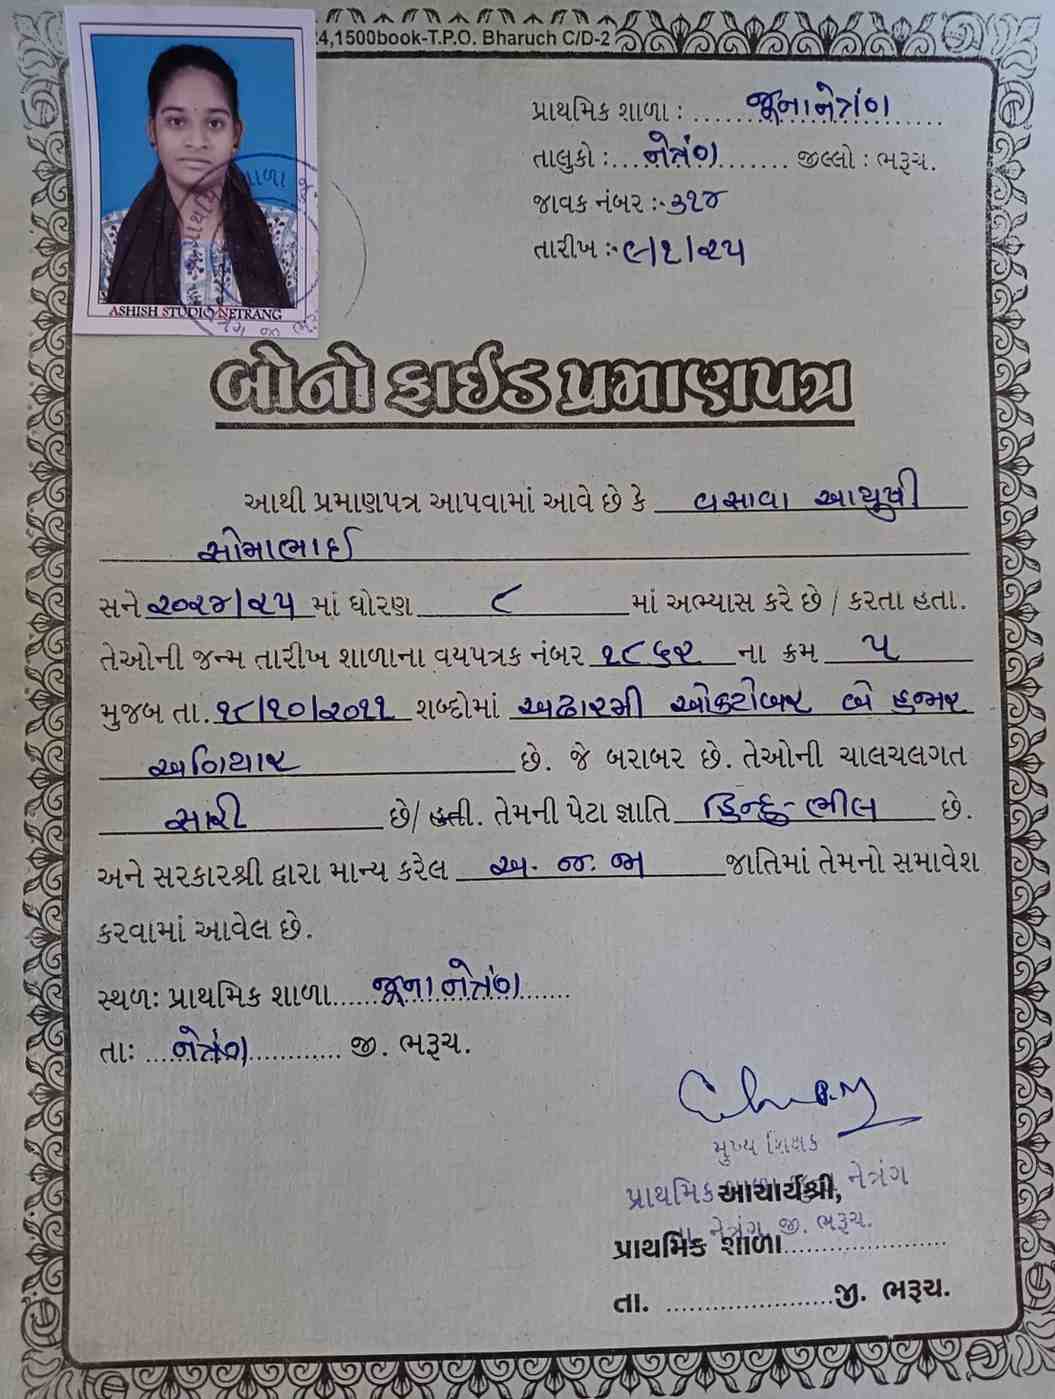 24,1500book-T.P.O. Bharuch C/D-2
પ્રાથમિક શાળા : જૂનાનેત્રંગ
તાલુકો : નેત્રંગ જીલ્લો : ભરૂચ.
જાવક નંબર :- ૩૧૪
તારીખ :- ૯/૧/૨૫
ASHISH STUDIO NETRANG
બોનો ફાઈડ પ્રમાણપત્ર
આથી પ્રમાણપત્ર આપવામાં આવે છે કે વસાવા આયુષી
સોમાભાઈ
સને ૨૦૨૪/૨૫ માં ધોરણ ૮ માં અભ્યાસ કરે છે / કરતા હતા.
તેઓની જન્મ તારીખ શાળાના વયપત્રક નંબર ૧૮૬૨ ના ક્રમ ૫
મુજબ તા. ૧૮/૧૦/૨૦૧૧ શબ્દોમાં અઢારમી ઓક્ટોબર બે હજાર
અગિયાર છે. જે બરાબર છે. તેઓની ચાલચલગત
સારી છે/ હતી. તેમની પેટા જ્ઞાતિ હિન્દુ-ભીલ છે.
અને સરકારશ્રી દ્વારા માન્ય કરેલ અ. જ. જા જાતિમાં તેમનો સમાવેશ
કરવામાં આવેલ છે.
સ્થળ: પ્રાથમિક શાળા જૂનાનેત્રંગ
તા: નેત્રંગ જી. ભરૂચ.
મુખ્ય શિક્ષક
પ્રાથમિક શાળા નેત્રંગ
આચાર્યશ્રી,
તા નેત્રંગ, જી. ભરૂચ.
પ્રાથમિક શાળા
તા. જી. ભરૂચ.